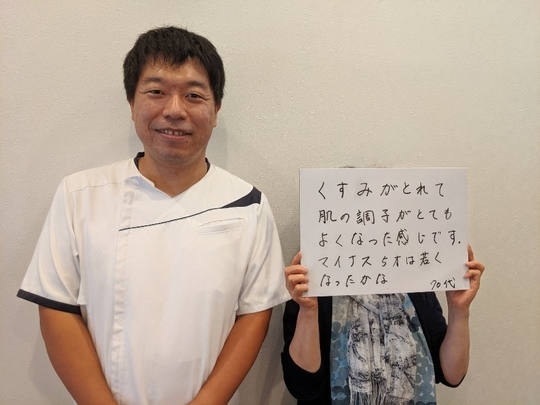 くすみがとれて
肌の調子がとても
よくなった感じです.
マイナス5才は若く
なったかな
70代